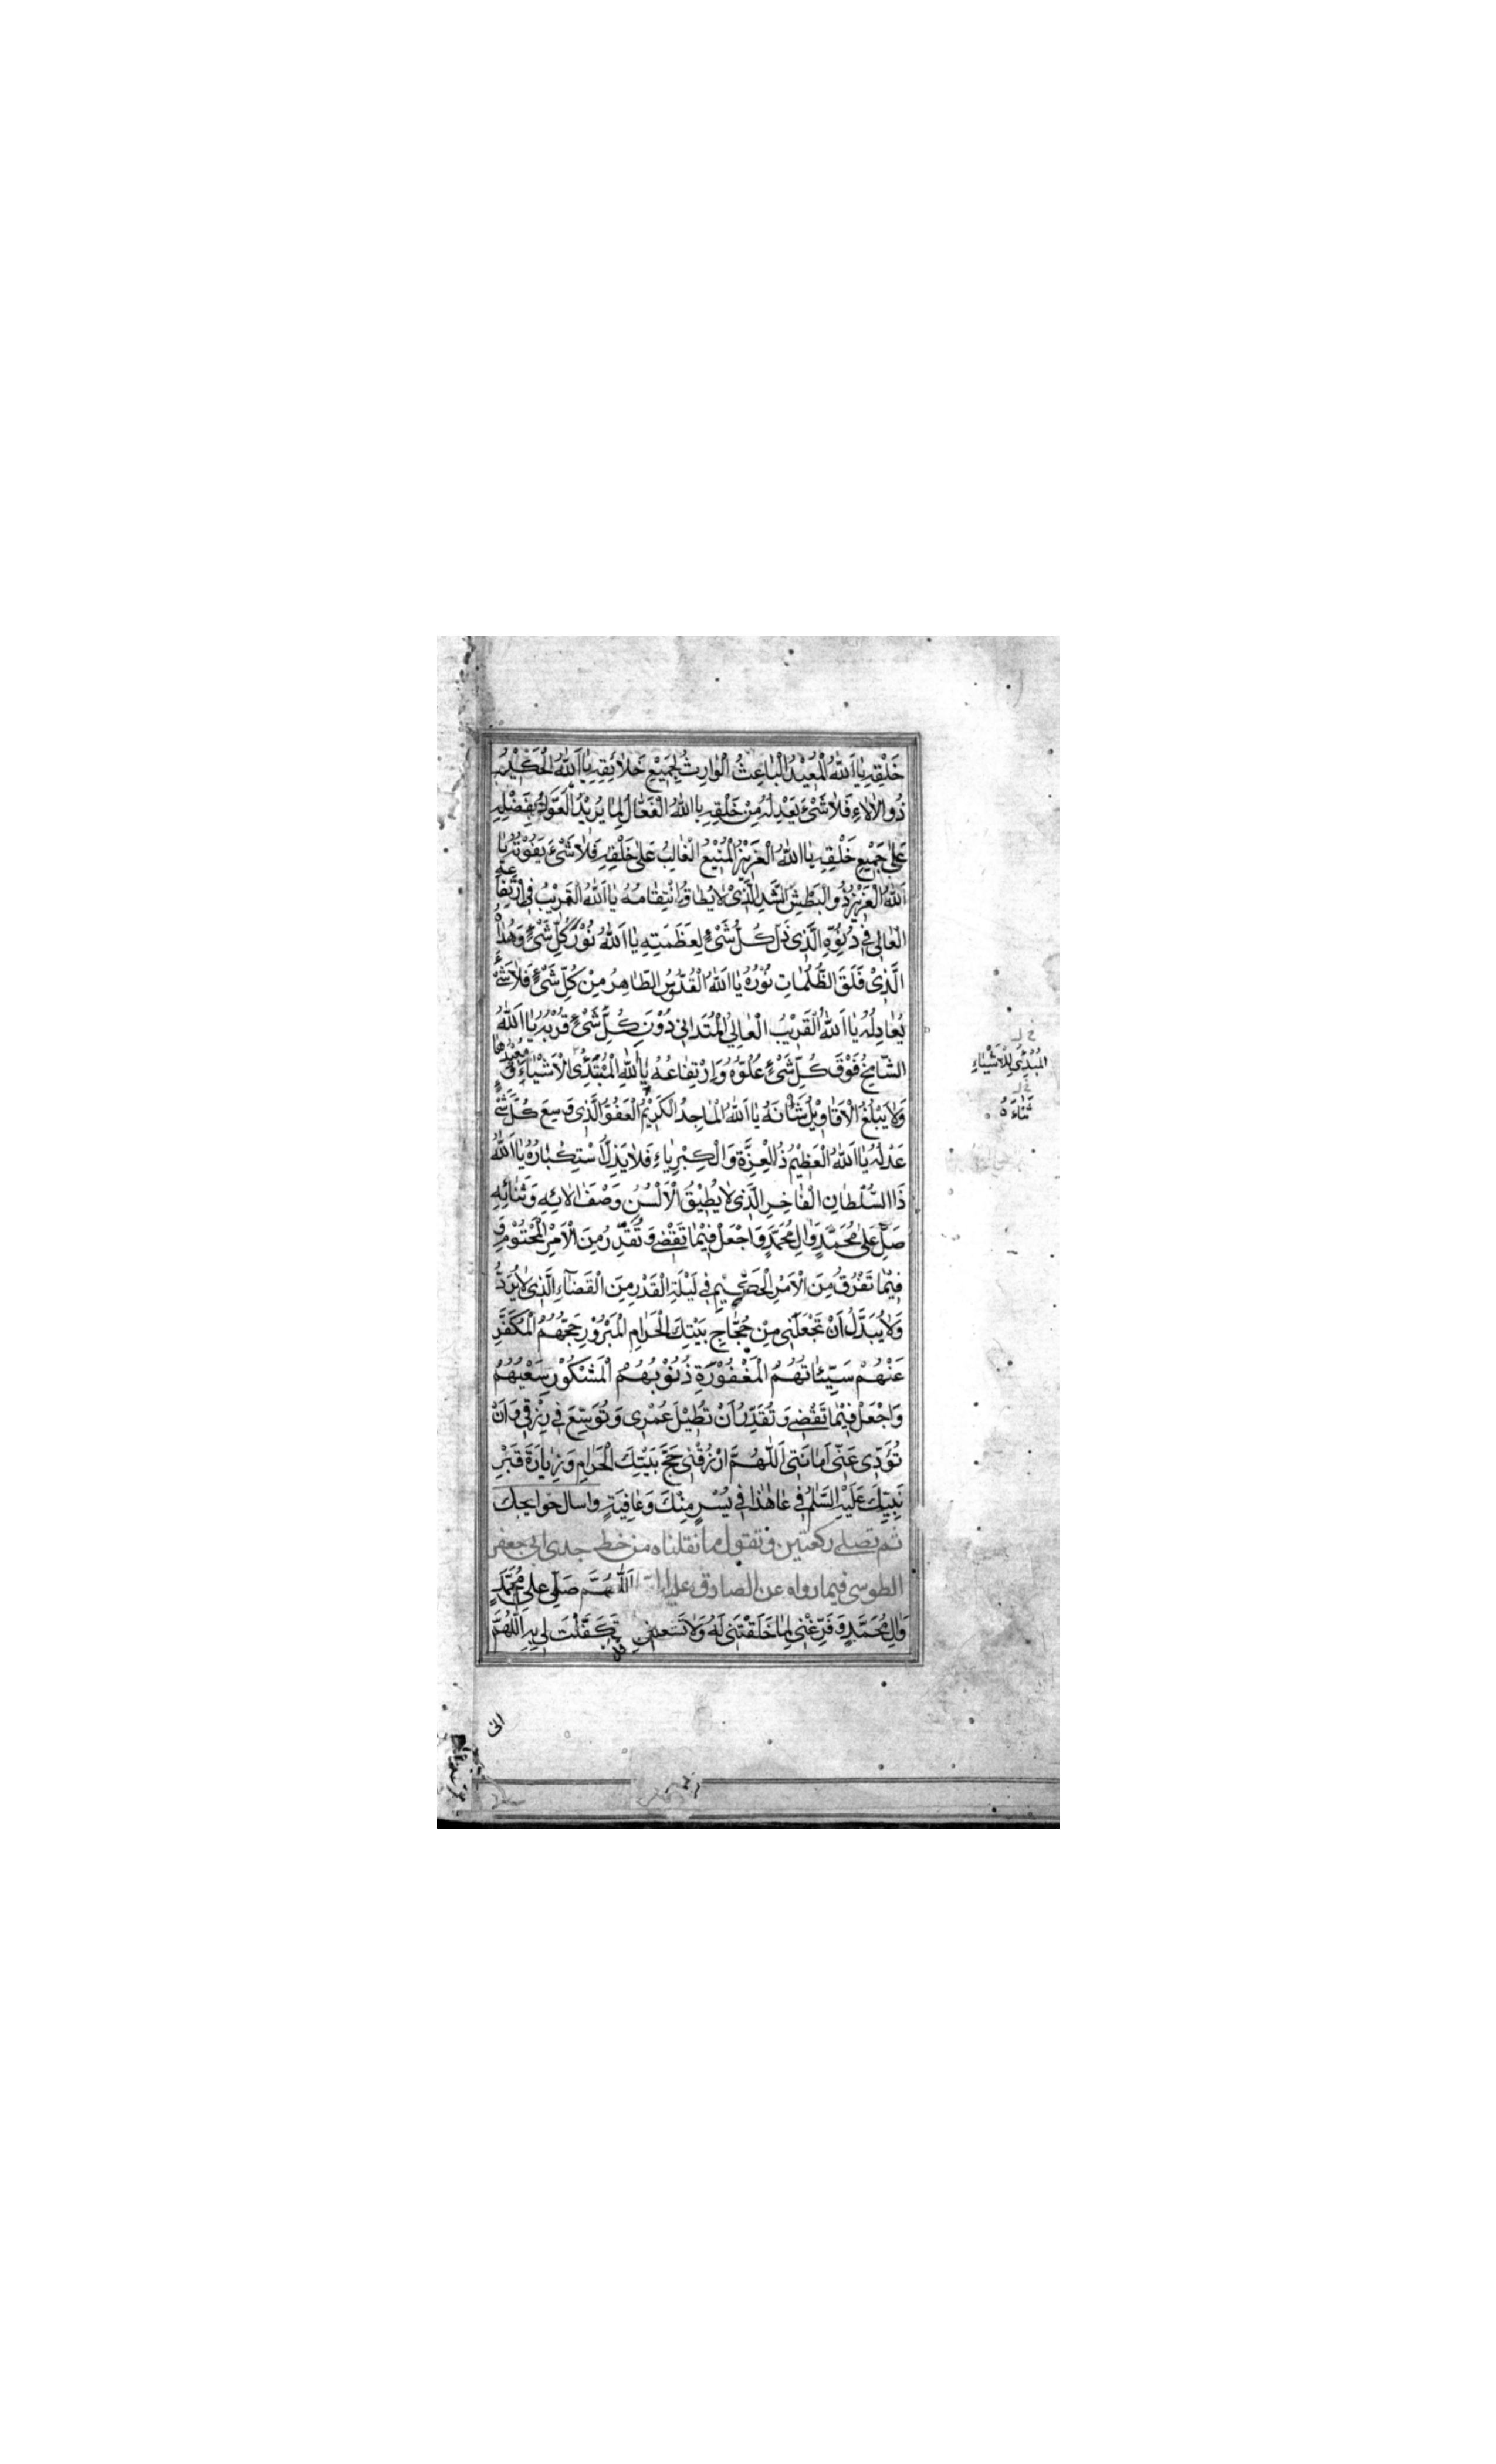 خَلْقِهِ يَا اَللّٰهُ الْمُعِيْدُ الْبَاعِثُ الْوَارِثُ لِجَمِيْعِ خَلَائِقِهِ يَا اَللّٰهُ الْحَكِيْمُ
ذُو الْاٰلَاءِ فَلَا شَیْءَ يَعْدِلُهُ مِنْ خَلْقِهِ يَا اَللّٰهُ الْفَعَّالُ لِمَا يُرِيْدُ الْعَوَّادُ بِفَضْلِهِ
عَلٰى جَمِيْعِ خَلْقِهِ يَا اَللّٰهُ الْعَزِيْزُ الْمَنِيْعُ الْغَالِبُ عَلٰى خَلْقِهِ فَلَا شَیْءَ يَفُوْتُهُ يَا
اَللّٰهُ الْعَزِيْزُ ذُو الْبَطْشِ الشَّدِيدِ الَّذِیْ لَا يُطَاقُ اِنْتِقَامُهُ يَا اَللّٰهُ الْقَرِيْبُ فِی ارْتِفَاعِهِ
الْعَالِی فِی دُنُوِّهِ الَّذِی ذَلَّ كُلُّ شَیْءٍ لِعَظَمَتِهِ يَا اَللّٰهُ نُوْرُ كُلِّ شَیْءٍ وَهُدَاهُ
الَّذِیْ فَلَقَ الظُّلُمَاتِ نُوْرُهُ يَا اَللّٰهُ الْقُدُّوْسُ الطَّاهِرُ مِنْ كُلِّ شَیْءٍ فَلَا شَیْءَ
يُعَادِلُهُ يَا اَللّٰهُ الْقَرِيْبُ الْعَالِي الْمُتَدَانِی دُوْنَ كُلِّ شَیْءٍ قُرْبُهُ يَا اَللّٰهُ
الشَّامِخُ فَوْقَ كُلِّ شَیْءٍ عُلُوُّهُ وَارْتِفَاعُهُ يَا اَللّٰهُ الْمُبْتَدِئُ الْاَشْيَاءِ وَمُعِيْدُهَا
وَلَا يَبْلُغُ الْاَقَاوِيْلُ شَأْنَهُ يَا اَللّٰهُ الْمَاجِدُ الْكَرِيْمُ الْعَفُوُّ الَّذِی وَسِعَ كُلَّ شَیْءٍ
عَدْلُهُ يَا اَللّٰهُ الْعَظِيْمُ ذُو الْعِزَّةِ وَالْكِبْرِيَاءِ فَلَا يَذِلُّ اسْتِكْبَارُهُ يَا اَللّٰهُ
ذَا السُّلْطَانِ الْفَاخِرِ الَّذِی لَا يُطِيْقُ الْاَلْسُنُ وَصْفَ اٰلَائِهِ وَثَنَائِهِ
صَلِّ عَلٰى مُحَمَّدٍ وَاٰلِ مُحَمَّدٍ وَاجْعَلْ فِيْمَا تَقْضِي وَتُقَدِّرُ مِنَ الْاَمْرِ الْمَحْتُوْمِ وَ
فِيْمَا تَفْرُقُ مِنَ الْاَمْرِ الْحَكِيْمِ فِي لَيْلَةِ الْقَدْرِ مِنَ الْقَضَآءِ الَّذِی لَا يُرَدُّ
وَلَا يُبَدَّلُ اَنْ تَجْعَلَنِی مِنْ حُجَّاجِ بَيْتِكَ الْحَرَامِ الْمَبْرُوْرِ حَجُّهُمُ الْمُكَفَّرِ
عَنْهُمْ سَيِّئَاتُهُمُ الْمَغْفُوْرَةِ ذُنُوْبُهُمُ الْمَشْكُوْرِ سَعْيُهُمْ
وَاجْعَلْ فِيْمَا تَقْضِي وَتُقَدِّرُ اَنْ تُطِيْلَ عُمْرِی وَتُوَسِّعَ فِی رِزْقِی وَاَنْ
تُؤَدِّی عَنِّی اَمَانَتِی اَللّٰهُمَّ ارْزُقْنِی حَجَّ بَيْتِكَ الْحَرَامِ وَزِيَارَةَ قَبْرِ
نَبِيِّكَ عَلَيْهِ السَّلَمُ فِی عَامِی هٰذَا فِی يُسْرٍ مِنْكَ وَعَافِيَةٍ واسال حوايجك
ثم تصلی ركعتين وتقول ما نقلناه من خط جدی ابی جعفر
الطوسی فيما رواه عن الصادق عليه اَللّٰهُمَّ صَلِّ عَلٰى مُحَمَّدٍ
وَاٰلِ مُحَمَّدٍ وَفَرِّغْنِی لِمَا خَلَقْتَنِی لَهُ وَلَا تَشْغَلْنِی تَكَفَّلْتَ لِی بِهِ اَللّٰهُمَّ
خ ل
الْمُبْدِئُ لِلْاَشْيَاءِ
خ ل
ثَنَاءَهُ
انی